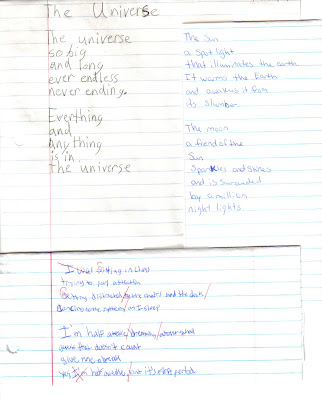 The Universe
The universe
so big
and long
ever endless
never ending.
Everthing
and
anything
is in
the universe
The Sun
a spot light
that illuminates the earth
It warms the Earth
and awakens it from
its slumber
The moon
a fiend of the
Sun
Sparkles and shines
and is surrounded
by a million
night lights
I was sitting in class
trying to pay attention
Getting distracted by the and the
I sleep
I'm half awake/dreaming/
doesn't count
give me a break
I'm not but it's